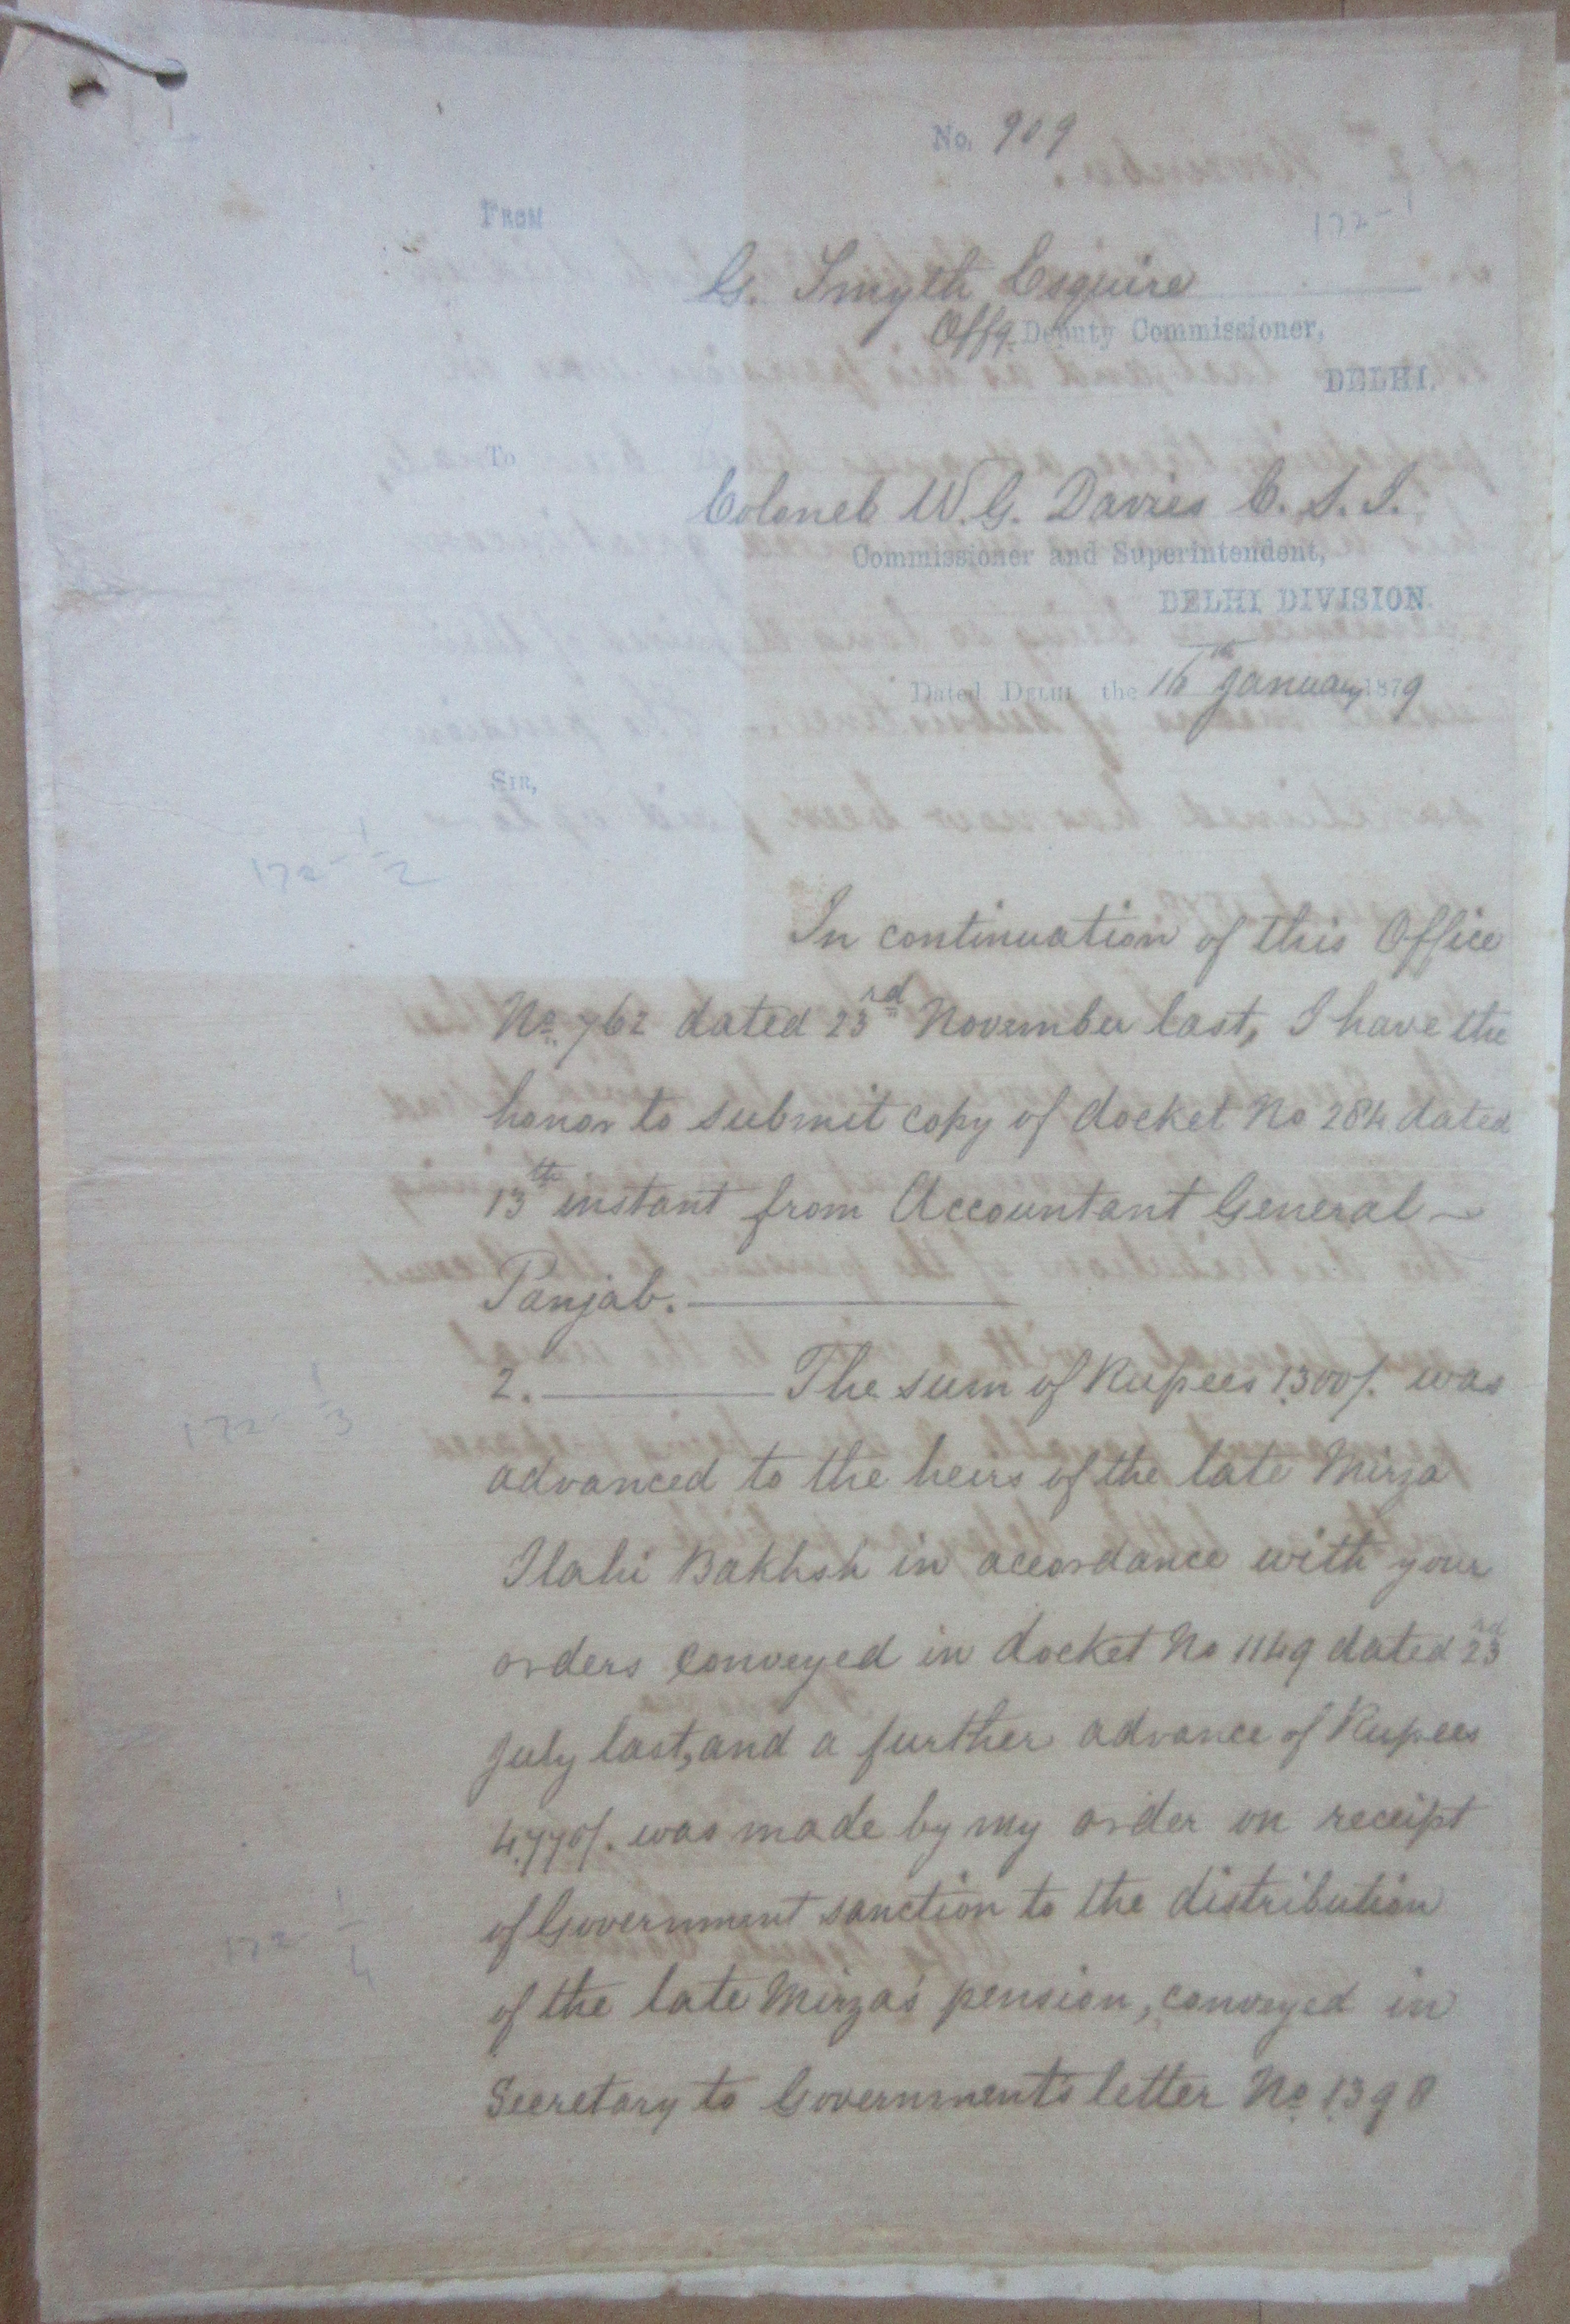 No. 909
172-1
FROM
G. Smyth Esquire
Offg. Deputy Commissioner,
DELHI.
To
Colonel W. G. Davies C. S. I.
Commissioner and Superintendent,
DELHI DIVISION
Dated DELHI the 16th January 1879
SIR,
172-1/2
In continuation of this Office
No. 762 dated 23rd November last, I have the
honor to submit copy of docket No 284 dated
13th instant from Accountant General
Panjab.
2. The sum of Rupees 1300/. was
172-1/3
advanced to the heirs of the late Mirza
Ilahi Bakhsh in accordance with your
orders conveyed in docket No 1149 dated 23rd
July last, and a further advance of Rupees
4,770/. was made by my order on receipt
of Government sanction to the distribution
172-1/4
of the late Mirza's pension, conveyed in
Secretary to Government's letter No. 1398